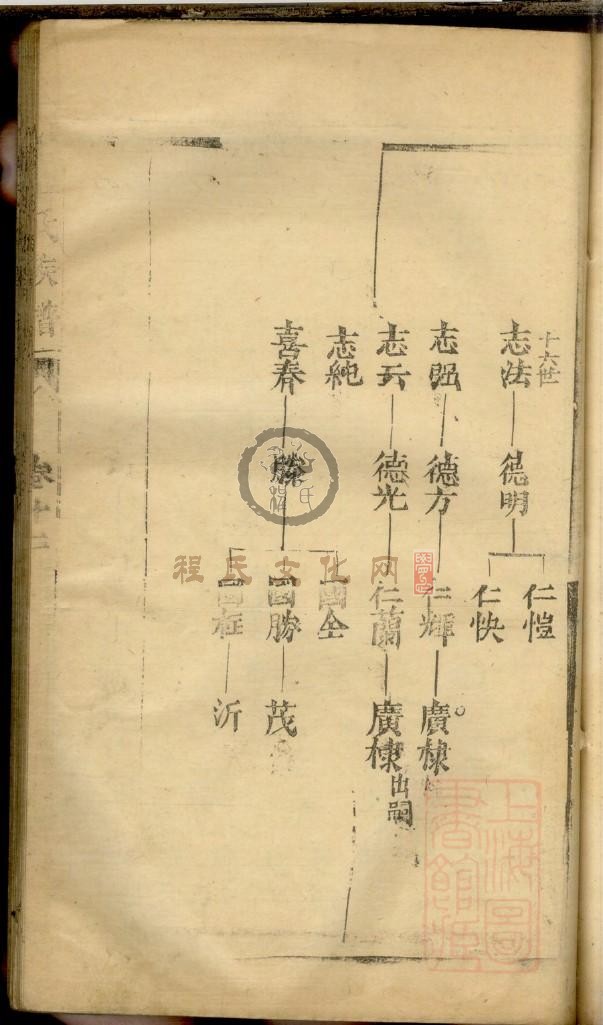 十六世
志法 德明 仁愷
仁快
志强 德方 仁輝 廣棣
志兵 德光 仁蘭 廣棣 出嗣
志純
喜春 滕 國全
國勝 茂
國 沂
氏族譜
卷十二
程氏文化网
上海圖書館藏